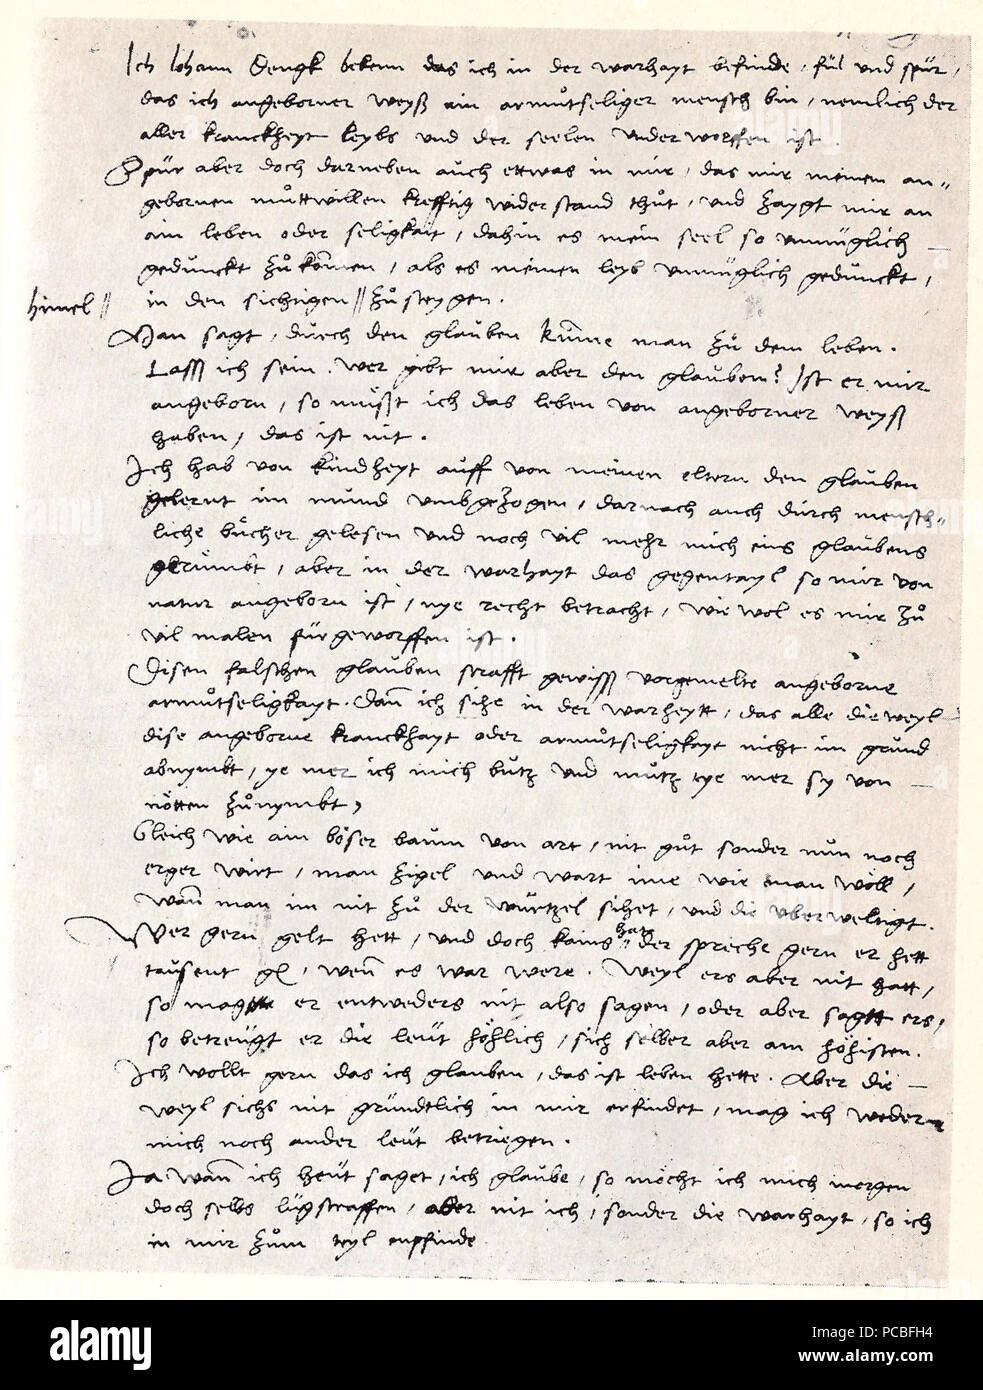 Ich Johann Dengk bekenn das ich in der warhayt befinde, fül und spür,
das ich angeborner weyß ain armůtseliger mensch bin, nemlich der
aller kranckheyt leybs und der seelen underworffen ist.
Spür aber doch darneben auch ettwas in mir, das mir meinen an„
gebornen můttwillen krefftig widerstand thůt, und zaygt mir an
ain leben oder seligkait, dahin es mein seel so unmüglich
gedunckt zů kom̄en, als es meinen leyb unmüglich gedunckt,
himel // in den sichtigen // zů steygen.
Man sagt, durch den glauben kum̄e man zů dem leben.
Lasß ich sein. wer gibt mir aber den glauben? Ist er mir
angeborn, so müßt ich das leben von angeborner weyß
haben, das ist nit.
Ich hab von kindheyt auff von meinen eltern den glauben
gelernt im mund umbgezogen, darnach auch durch mensch„
liche bücher gelesen und noch vil mehr mich eins glaubens
gerümbt, aber in der warhayt das gegentayl so mir von
natur angeborn ist, nye recht betracht, wie wol es mir zů
vil malen fürgeworffen ist.
Disen falschen glauben strafft gewisß vorgemelte angeborne
armůtseligkayt. Dan̄ ich sihe in der warheytt, das alle die weyl
dise angeborne kranckhayt oder armůtseligkayt nicht im grund
abnymbt, ye mer ich mich butz und mutz ye mer sy von
nötten zůnymbt,
Gleich wie ain böser baum von art, nit gůt sonder nun noch
erger wirt, man zigel und wart ime wie man wöll,
wan̄ man im nit zů der würtzel sihet, und die uberweltigt.
Wer gern gelt hett, und doch kains hat // der sprech gern er hett
tausent gl, wen̄ es war were. Weyl ers aber nit hatt,
so mag er entweders nit also sagen, oder aber sagtt ers,
so betreugt er die leüt höhlich, sich selber aber am höhisten.
Ich wollt gern das ich glauben, das ist leben hette. Aber die
weyl sichs nit gründtlich in mir erfindet, mag ich weder
mich noch ander leüt betriegen.
Ja wan̄ ich heüt saget, ich glaube, so möcht ich mich morgen
doch selbs lügstraffen, aber nit ich, sonder die warhayt, so ich
in mir zům teyl empfinde
alamy
Image ID: PCBFH4
www.alamy.com